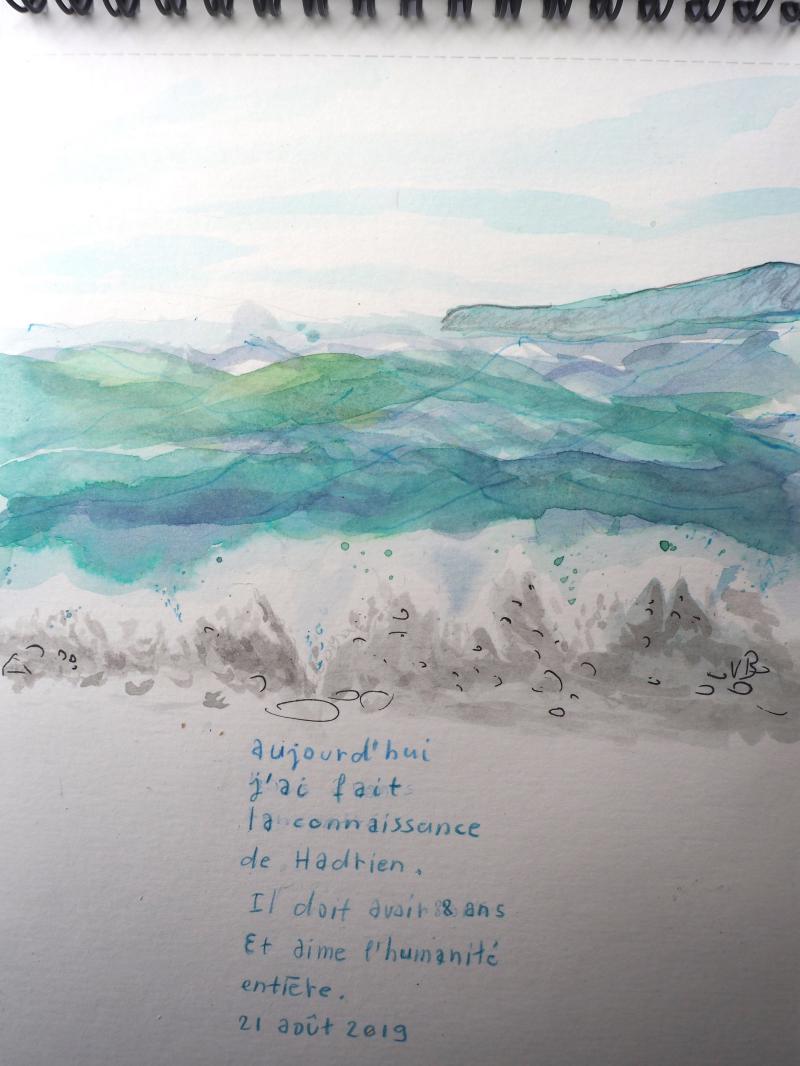 VB
aujourd'hui
j'ai faits
la connaissance
de Hadrien.
Il doit avoir 8 ans
Et aime l'humanité
entière.
21 août 2019